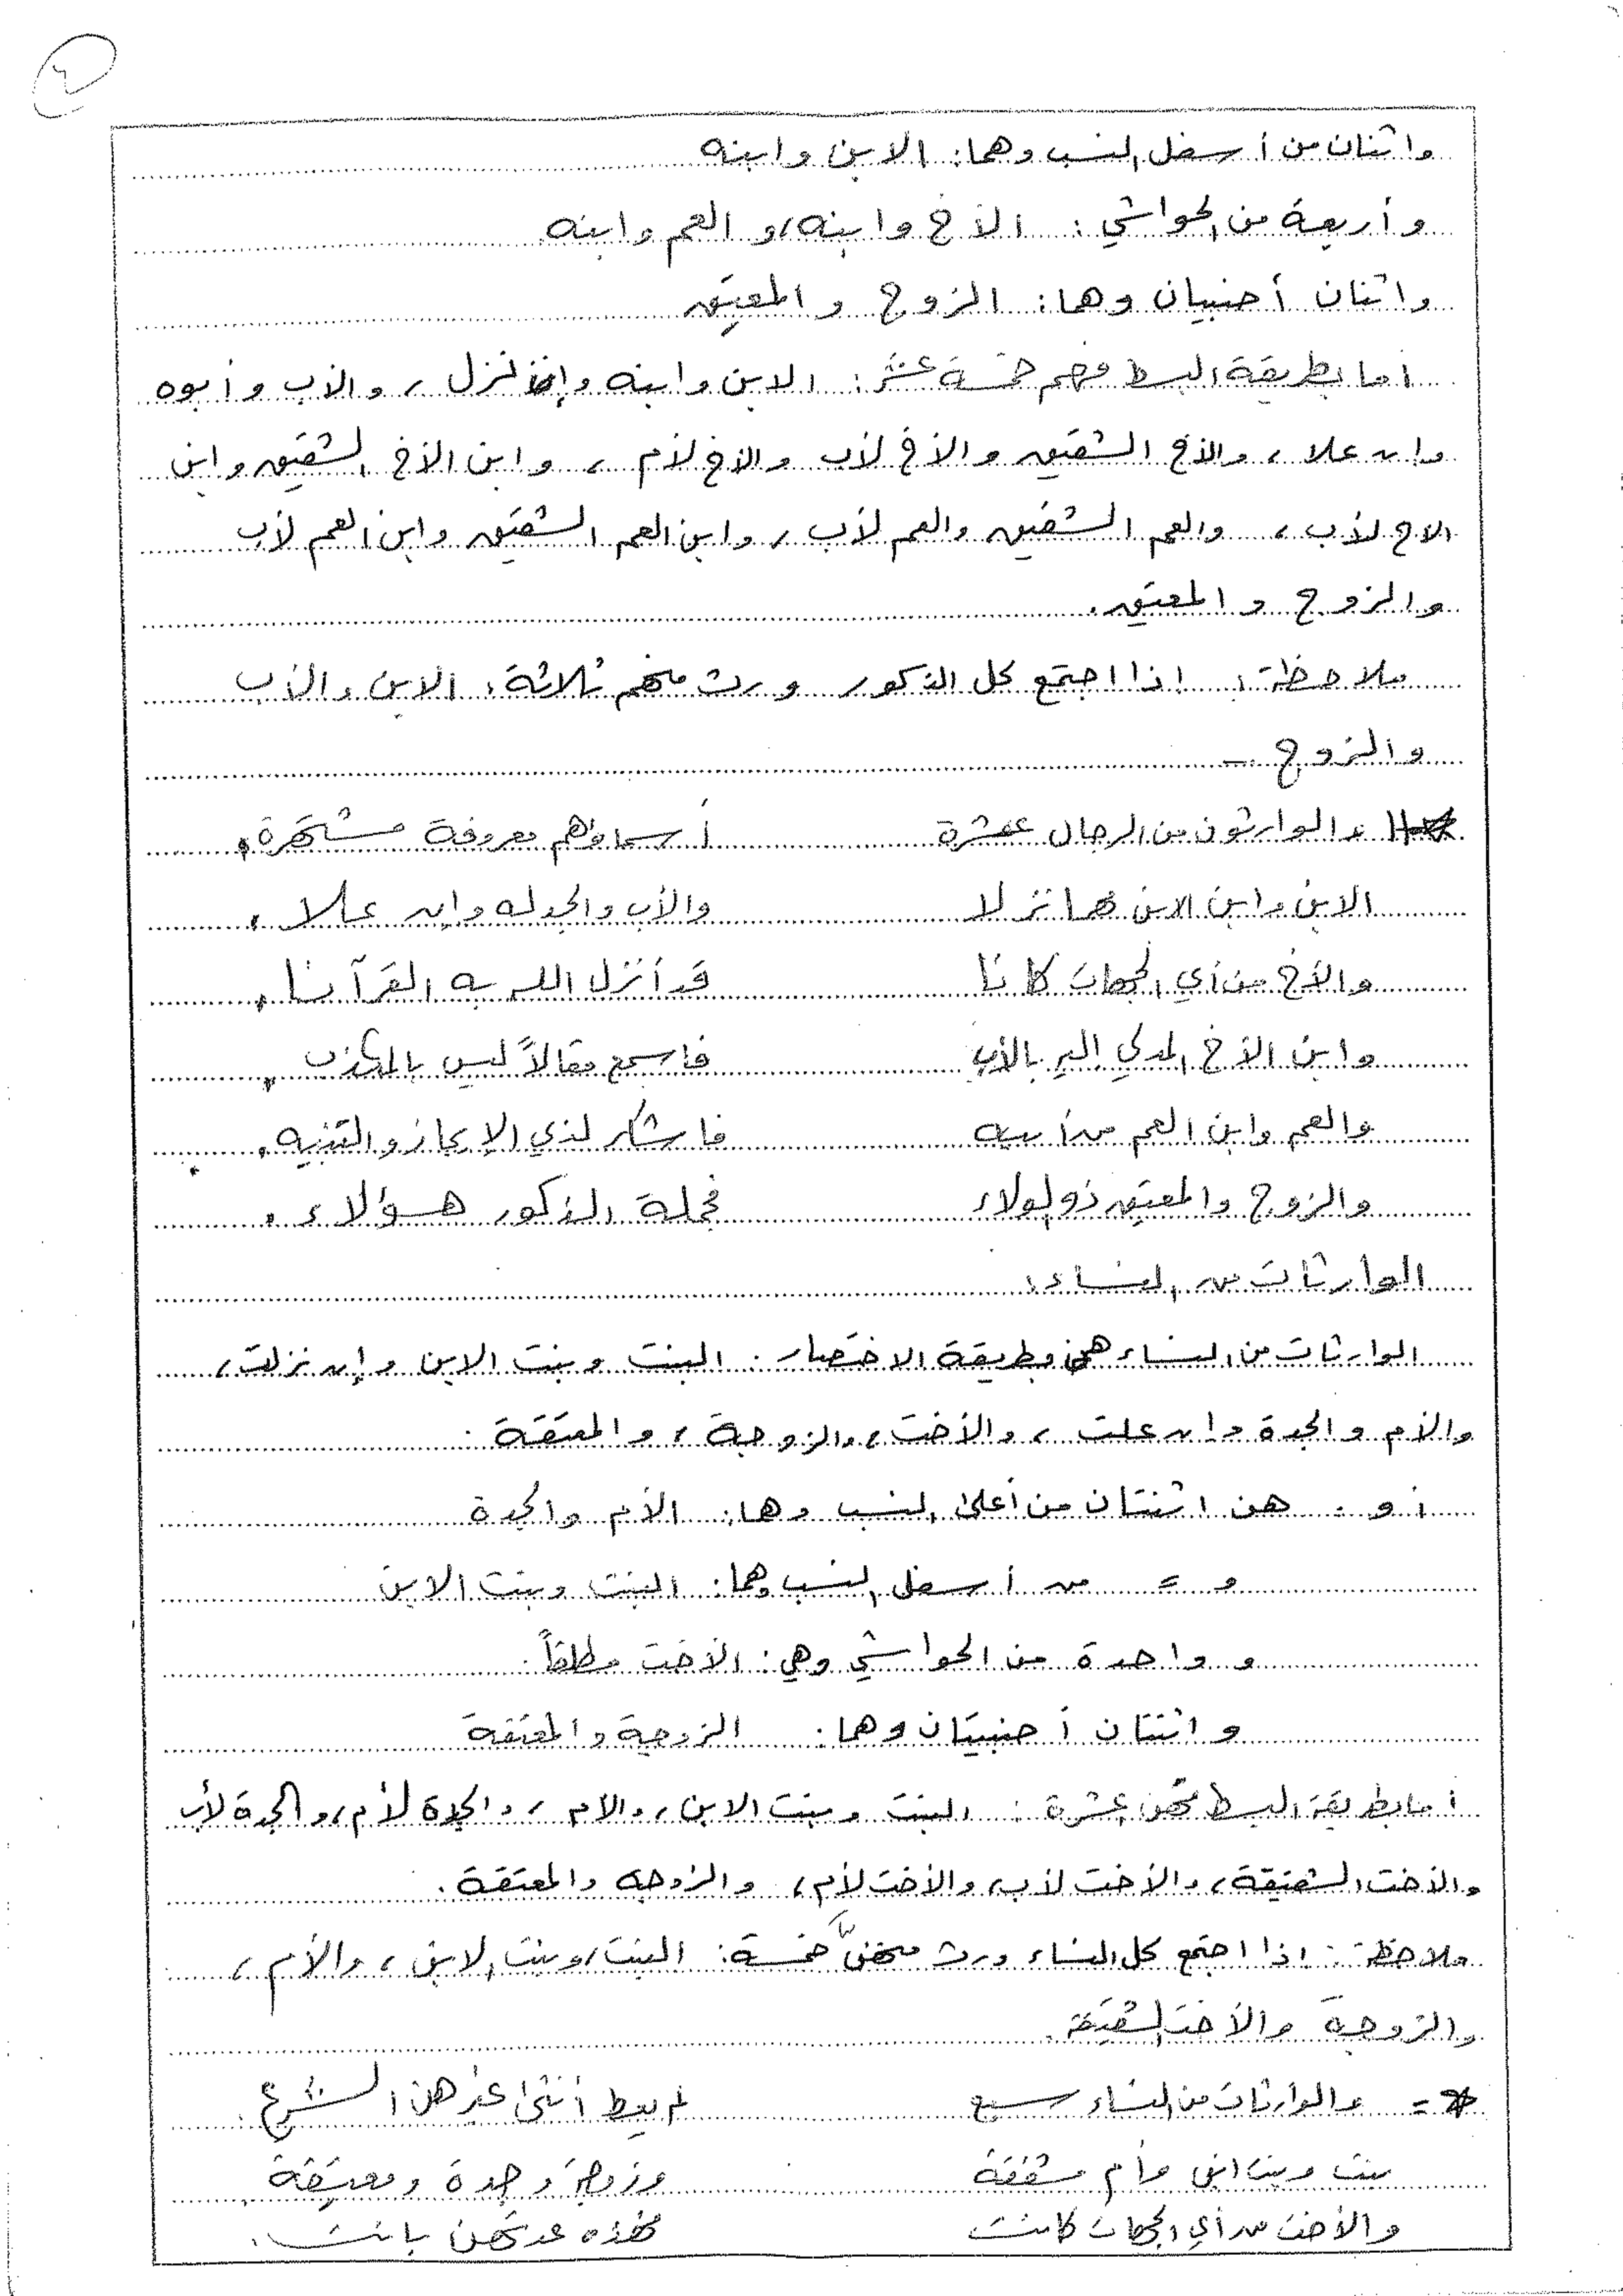 ٢
واثنان من أسفل النسب وهما: الابن وابنه
وأربعة من الحواشي: الأخ وابنه، والعم وابنه
واثنان أجنبيان وهما: الزوج والمعتق
أما بطريقة البسط فهم خمسة عشر: الابن وابنه وإن نزل، والأب وأبوه
وإن علا، والأخ الشقيق والأخ لأب والأخ لأم، وابن الأخ الشقيق وابن
الأخ لأب، والعم الشقيق والعم لأب، وابن العم الشقيق وابن العم لأب
والزوج والمعتق.
ملاحظة: إذا اجتمع كل الذكور ورث منهم ثلاثة: الابن والأب
والزوج ــ
والوارثون من الرجال عشرة أسماؤهم معروفة مشتهرة.
الابن وابن الابن مهما نزلا والأب والجد له وإن علا.
والأخ من أي الجهات كانا قد أنزل الله به القرآنا.
وابن الأخ المدلي إليه بالأب فاسمع مقالاً ليس بالمكذب.
والعم وابن العم من أبيه فاشكر لذي الإيجاز والتنبيه.
والزوج والمعتق ذو الولاء فجملة الذكور هؤلاء.
الوارثات من النساء:
الوارثات من النساء هن بطريقة الاختصار: البنت وبنت الابن وإن نزلت،
والأم والجدة وإن علت، والأخت، والزوجة، والمعتقة.
أو: هن اثنتان من أعلى النسب وهما: الأم والجدة
و = من أسفل النسب وهما: البنت وبنت الابن
و واحدة من الحواشي وهي: الأخت مطلقاً.
واثنتان أجنبيتان وهما: الزوجة والمعتقة
أما بطريقة البسط فهن عشرة: البنت وبنت الابن، والأم، والجدة لأم، والجدة لأب
والأخت الشقيقة، والأخت لأب، والأخت لأم، والزوجة والمعتقة.
ملاحظة: إذا اجتمع كل النساء ورث منهنّ خمسة: البنت، وبنت الابن، والأم،
والزوجة والأخت الشقيقة.
= والوارثات من النساء سبع لم يعط أنثى غيرهن الشرع.
بنت وبنت ابن وأم مشفقة وزوجة وجدة ومعتقة.
والأخت من أي الجهات كانت فهذه عدتهن بانت.